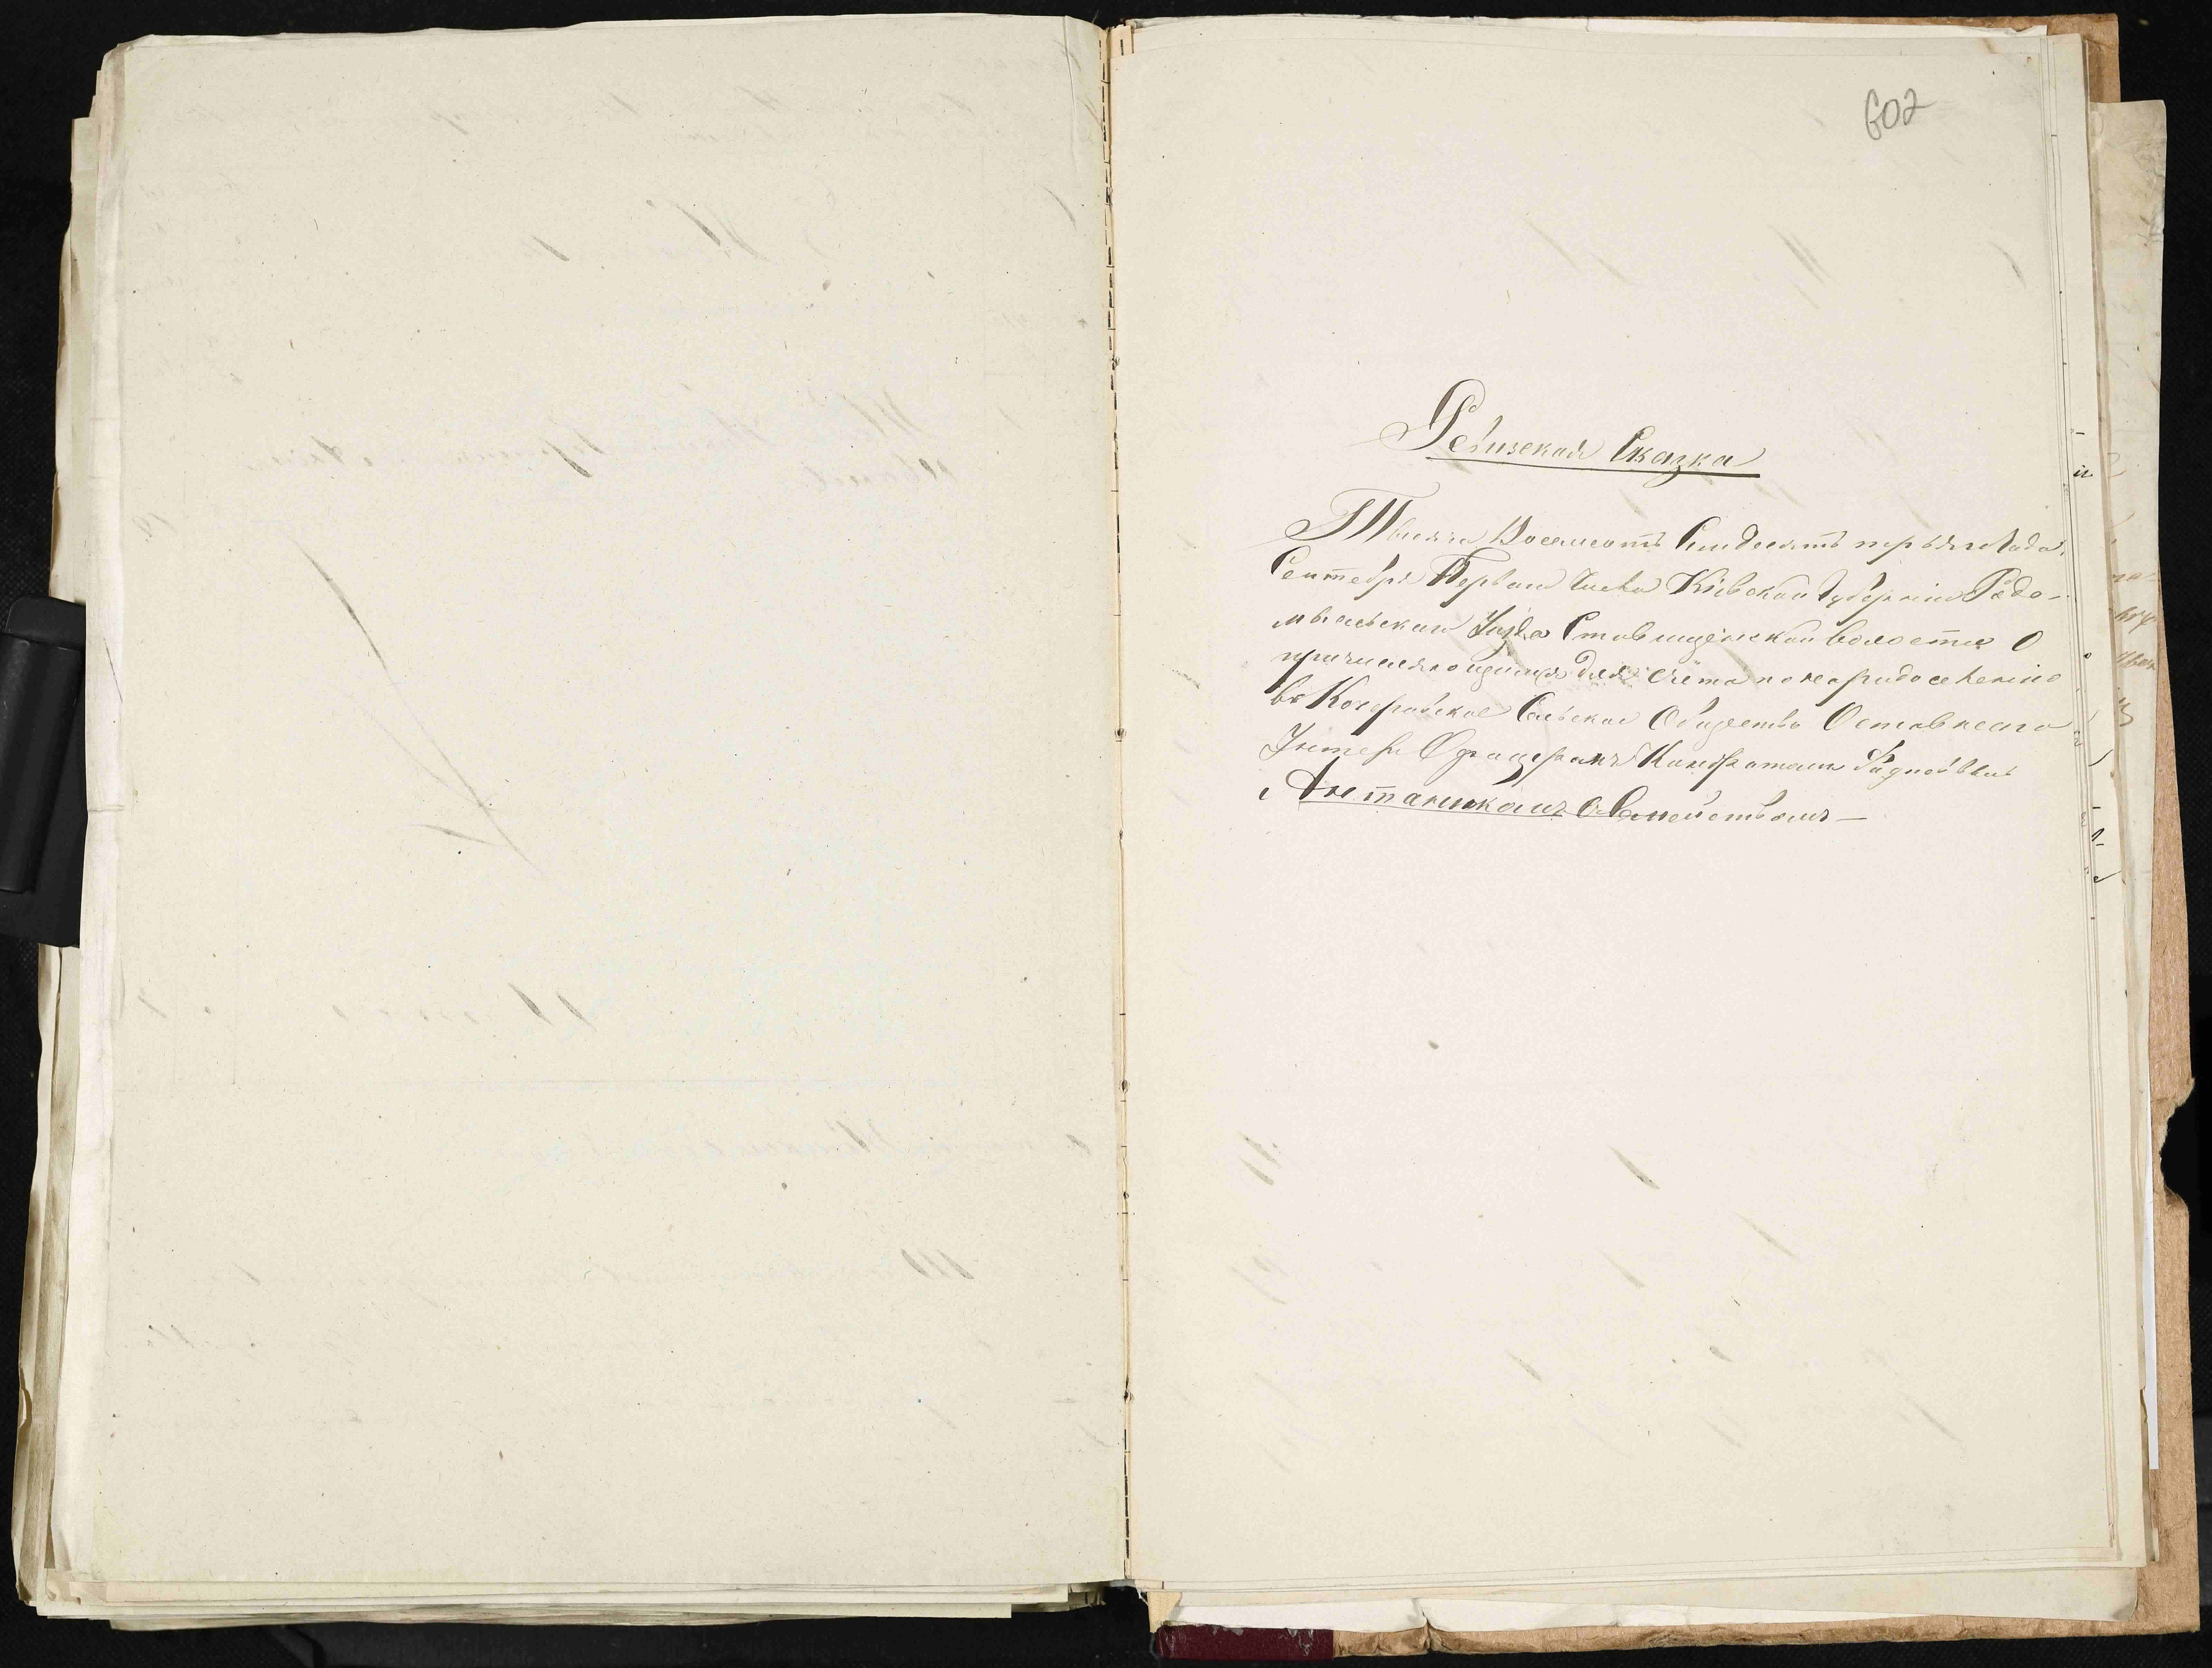 602
Ревизская Сказка
Тысяча Восемсотъ Семдесятъ первого Года,
Сентебря Первого Числа Кіевской Губерніи Радо-
мысльскаго Уезда Ставищенской волости О
причисляющимся для счёта по народоселенію
въ Кочеровское Сельское Общество Отставного
Унтеръ Офицера
Антаникомъ Семействомъ —